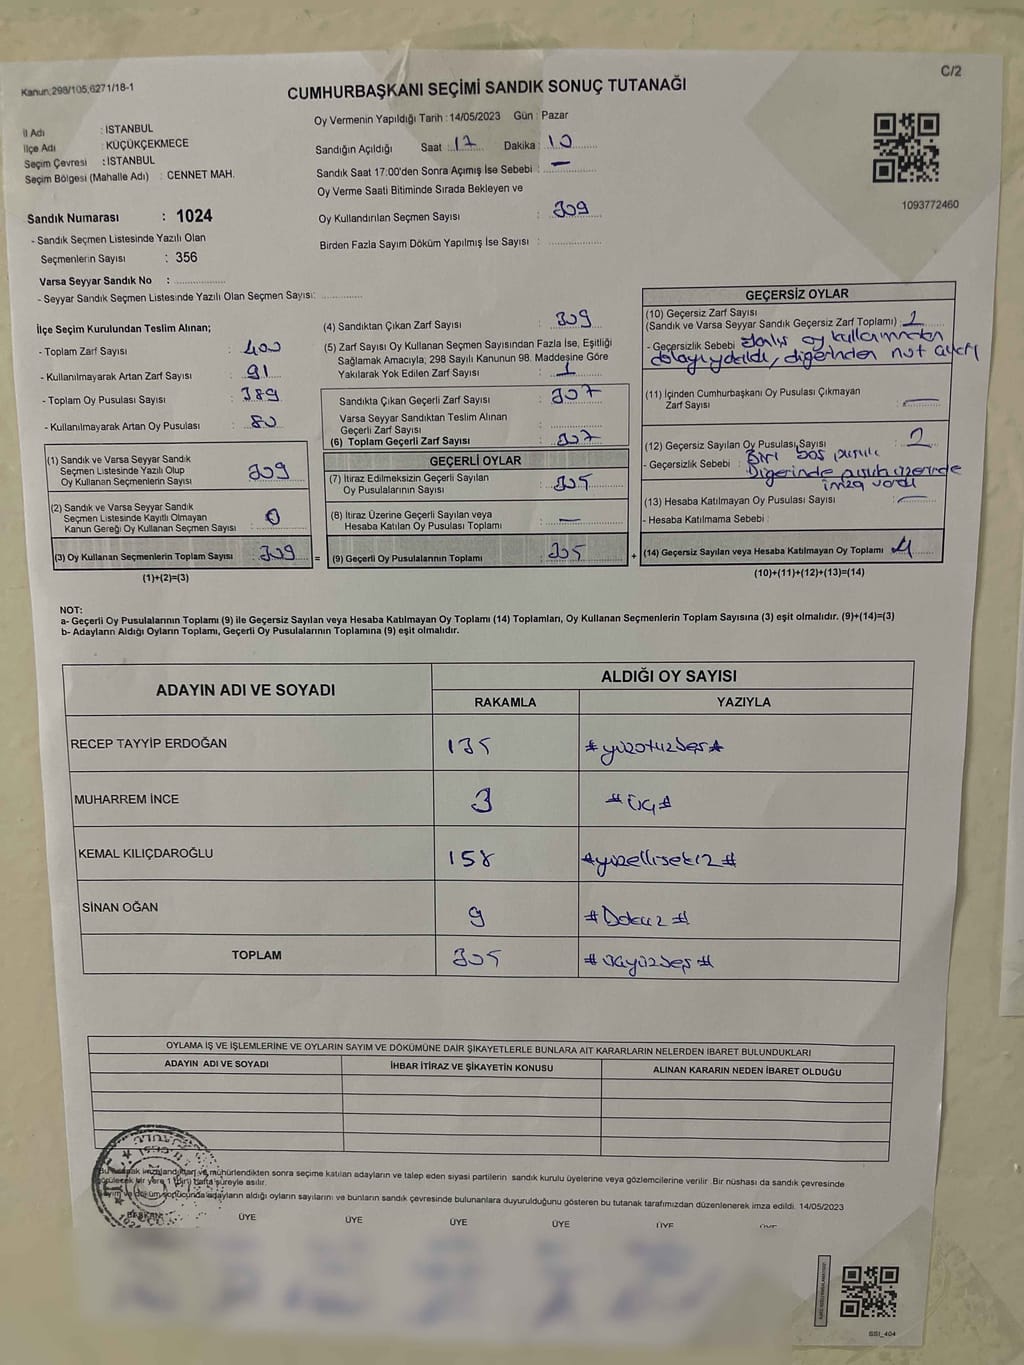 Kanun:298/105,6271/18-1
C/2
CUMHURBAŞKANI SEÇİMİ SANDIK SONUÇ TUTANAĞI
İl Adı : İSTANBUL
İlçe Adı : KÜÇÜKÇEKMECE
Seçim Çevresi : İSTANBUL
Seçim Bölgesi (Mahalle Adı) : CENNET MAH.
Sandık Numarası : 1024
- Sandık Seçmen Listesinde Yazılı Olan
Seçmenlerin Sayısı : 356
Varsa Seyyar Sandık No :
- Seyyar Sandık Seçmen Listesinde Yazılı Olan Seçmen Sayısı:
Oy Vermenin Yapıldığı Tarih : 14/05/2023 Gün : Pazar
Sandığın Açıldığı Saat : 17 Dakika : 10
Sandık Saat 17:00'den Sonra Açımış İse Sebebi : —
Oy Verme Saati Bitiminde Sırada Bekleyen ve
Oy Kullandırılan Seçmen Sayısı : 309
Birden Fazla Sayım Döküm Yapılmış İse Sayısı :
1093772460
İlçe Seçim Kurulundan Teslim Alınan;
- Toplam Zarf Sayısı : 400
- Kullanılmayarak Artan Zarf Sayısı : 91
- Toplam Oy Pusulası Sayısı : 389
- Kullanılmayarak Artan Oy Pusulası : 80
(1) Sandık ve Varsa Seyyar Sandık
Seçmen Listesinde Yazılı Olup
Oy Kullanan Seçmenlerin Sayısı : 309
(2) Sandık ve Varsa Seyyar Sandık
Seçmen Listesinde Kayıtlı Olmayan
Kanun Gereği Oy Kullanan Seçmen Sayısı : 0
(3) Oy Kullanan Seçmenlerin Toplam Sayısı : 309
(1)+(2)=(3)
(4) Sandıktan Çıkan Zarf Sayısı : 309
(5) Zarf Sayısı Oy Kullanan Seçmen Sayısından Fazla İse, Eşitliği
Sağlamak Amacıyla, 298 Sayılı Kanunun 98. Maddesine Göre
Yakılarak Yok Edilen Zarf Sayısı : 1
Sandıkta Çıkan Geçerli Zarf Sayısı : 307
Varsa Seyyar Sandıktan Teslim Alınan
Geçerli Zarf Sayısı :
(6) Toplam Geçerli Zarf Sayısı : 307
GEÇERLİ OYLAR
(7) İtiraz Edilmeksizin Geçerli Sayılan
Oy Pusulalarının Sayısı : 305
(8) İtiraz Üzerine Geçerli Sayılan veya
Hesaba Katılan Oy Pusulası Toplamı : —
= (9) Geçerli Oy Pusulalarının Toplamı : 305
GEÇERSİZ OYLAR
(10) Geçersiz Zarf Sayısı
(Sandık ve Varsa Seyyar Sandık Geçersiz Zarf Toplamı) : 2
- Geçersizlik Sebebi : yanlış oy kullanımından
dolayı yakıldı, diğerinden not çıktı
(11) İçinden Cumhurbaşkanı Oy Pusulası Çıkmayan
Zarf Sayısı : —
(12) Geçersiz Sayılan Oy Pusulası Sayısı : 2
- Geçersizlik Sebebi : Biri boş pusula
Diğerinde pusula üzerinde
imza vardı
(13) Hesaba Katılmayan Oy Pusulası Sayısı : —
- Hesaba Katılmama Sebebi :
+ (14) Geçersiz Sayılan veya Hesaba Katılmayan Oy Toplamı : 4
(10)+(11)+(12)+(13)=(14)
NOT:
a- Geçerli Oy Pusulalarının Toplamı (9) ile Geçersiz Sayılan veya Hesaba Katılmayan Oy Toplamı (14) Toplamları, Oy Kullanan Seçmenlerin Toplam Sayısına (3) eşit olmalıdır. (9)+(14)=(3)
b- Adayların Aldığı Oyların Toplamı, Geçerli Oy Pusulalarının Toplamına (9) eşit olmalıdır.
ADAYIN ADI VE SOYADI ALDIĞI OY SAYISI
RAKAMLA YAZIYLA
RECEP TAYYİP ERDOĞAN 135 #yüzotuzbeş#
MUHARREM İNCE 3 #üç#
KEMAL KILIÇDAROĞLU 158 #yüzellisekiz#
SİNAN OĞAN 9 #Dokuz#
TOPLAM 305 #üçyüzbeş#
OYLAMA İŞ VE İŞLEMLERİNE VE OYLARIN SAYIM VE DÖKÜMÜNE DAİR ŞİKAYETLERLE BUNLARA AİT KARARLARIN NELERDEN İBARET BULUNDUKLARI
ADAYIN ADI VE SOYADI İHBAR İTİRAZ VE ŞİKAYETİN KONUSU ALINAN KARARIN NEDEN İBARET OLDUĞU
Bu tutanak imzalandıktan ve mühürlendikten sonra seçime katılan adayların ve talep eden siyasi partilerin sandık kurulu üyelerine veya gözlemcilerine verilir. Bir nüshası da sandık çevresinde
görülecek bir yere 1 (Bir) hafta süreyle asılır.
Sayım ve döküm sonucunda adayların aldığı oyların sayılarını ve bunların sandık çevresinde bulunanlara duyurulduğunu gösteren bu tutanak tarafımızdan düzenlenerek imza edildi. 14/05/2023
BAŞKAN ÜYE ÜYE ÜYE ÜYE ÜYE ÜYE
SSI_404